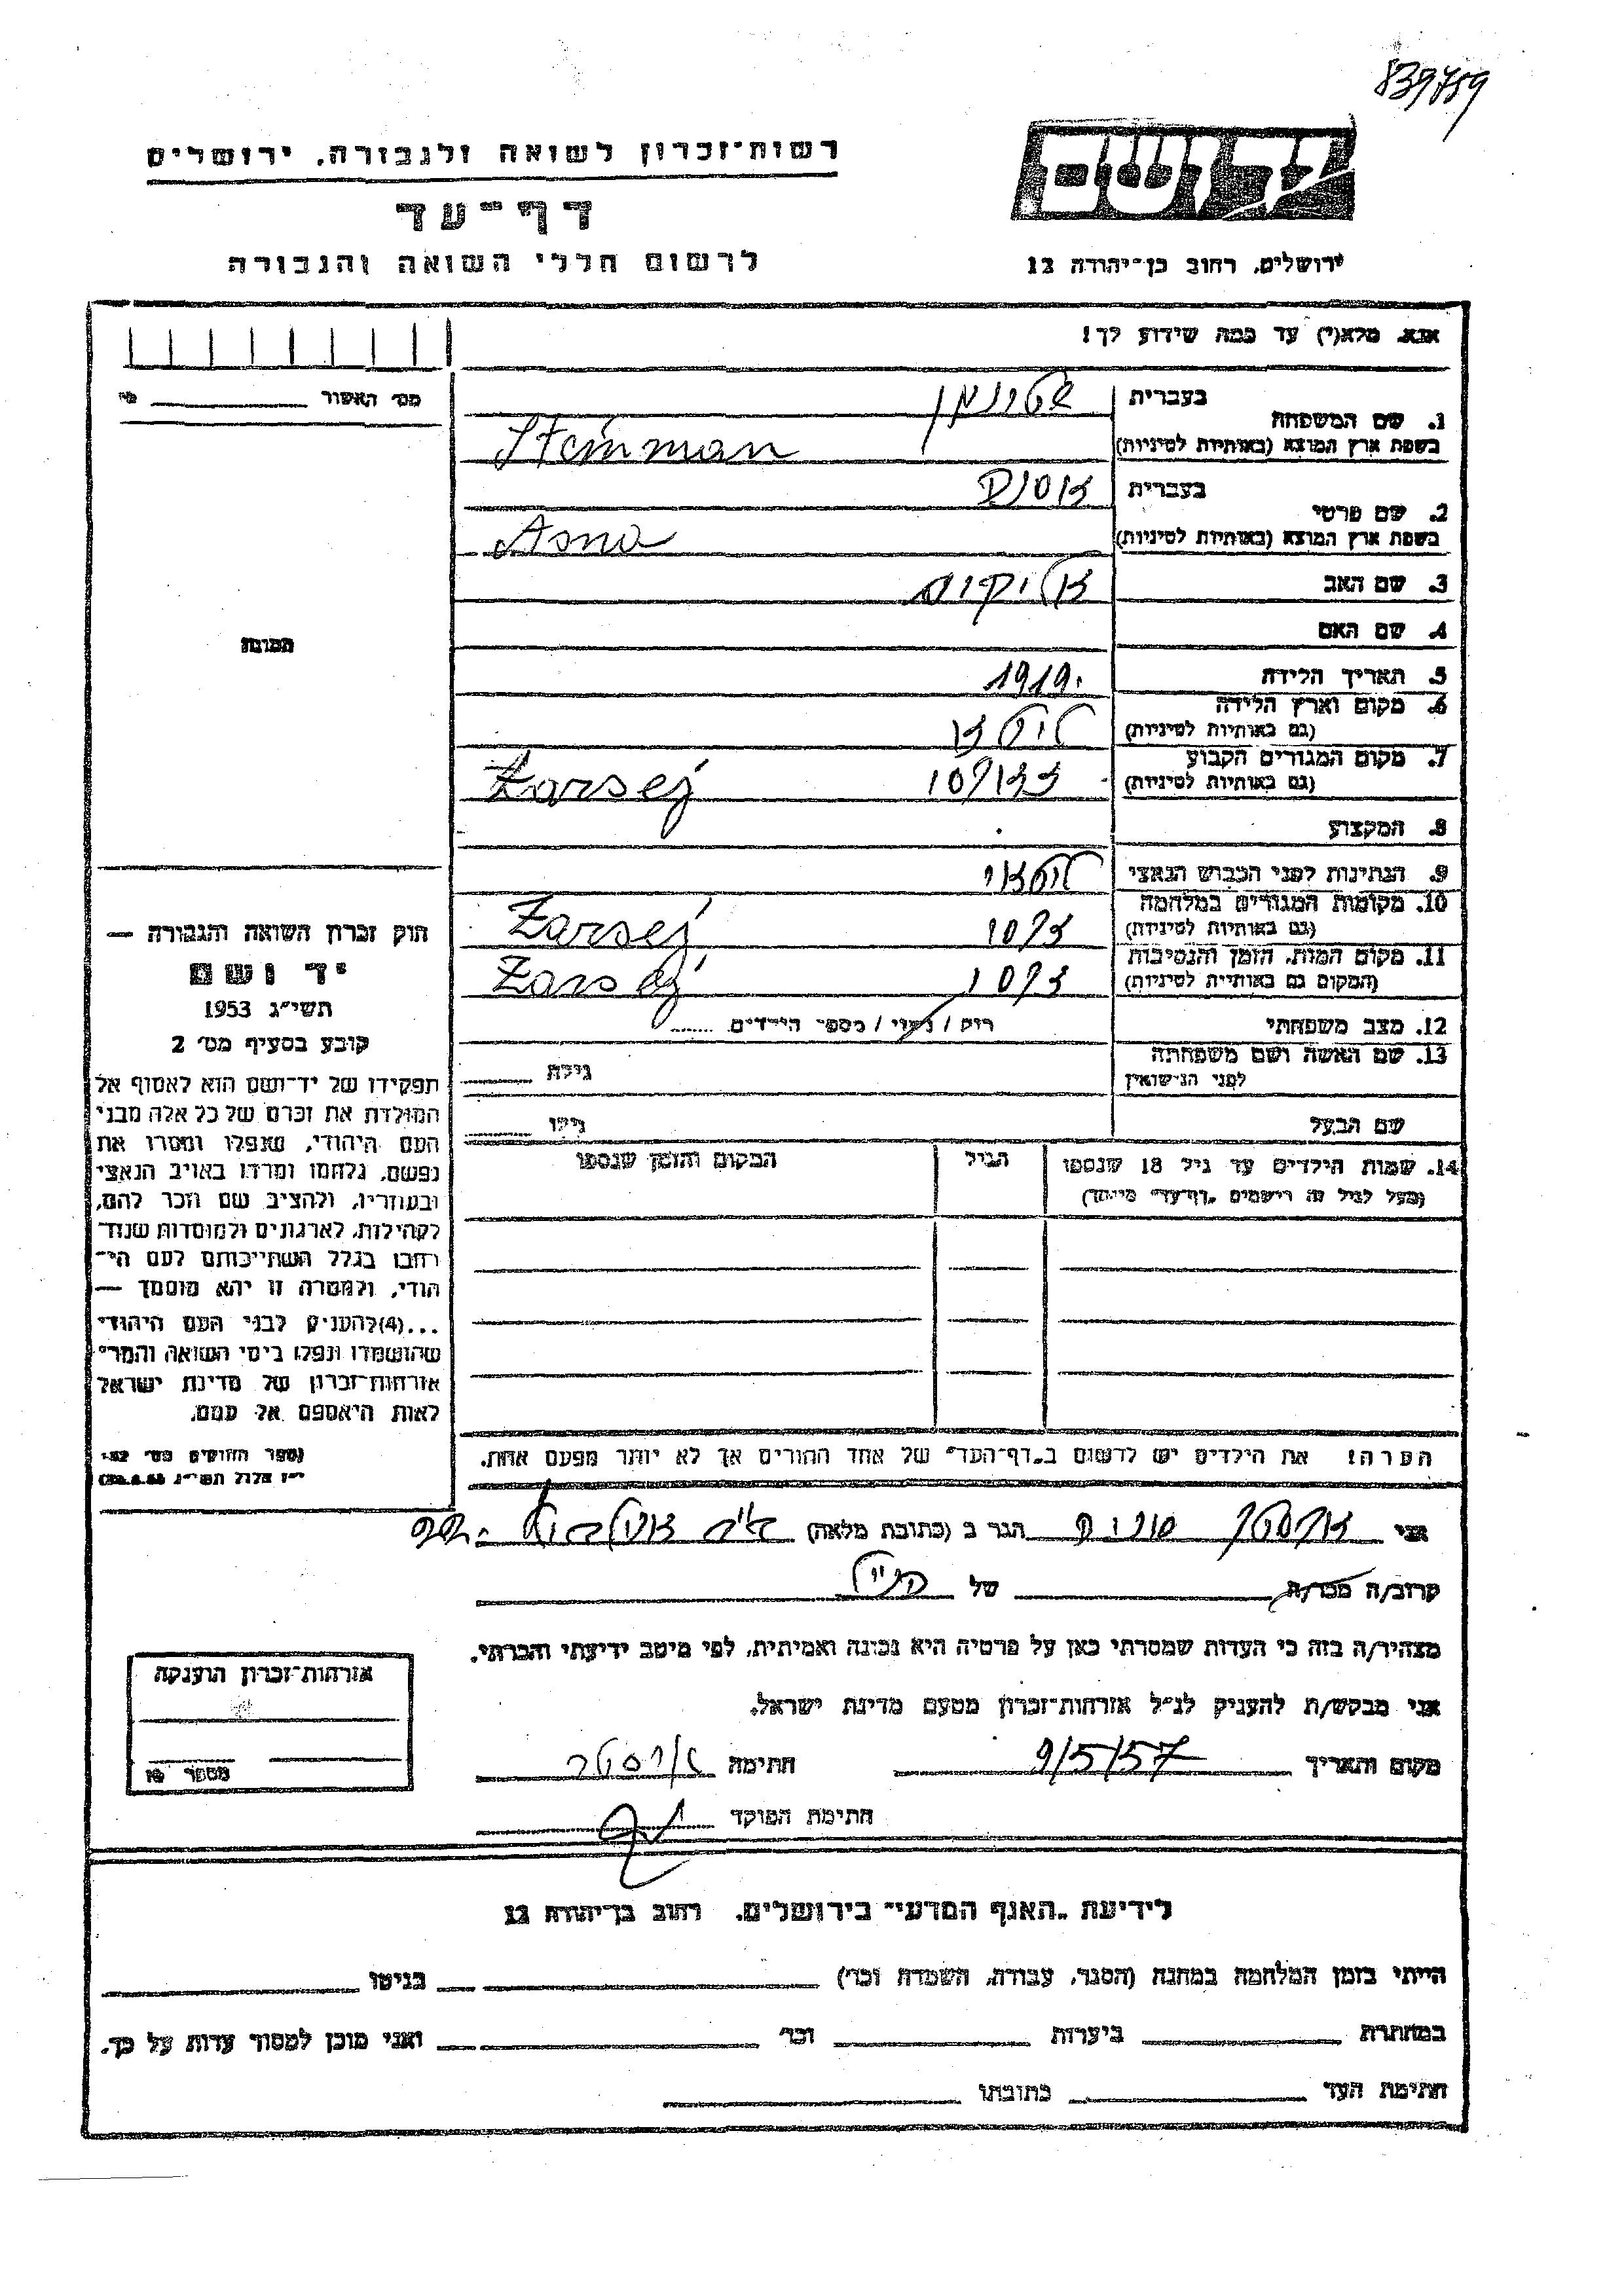 839759
רשות־זכרון לשואה ולגבורה, ירושלים
דף־עד
לרשום חללי השואה והגבורה
יד ושם
ירושלים, רחוב בן־יהודה 12
אנא, מלא(י) עד כמה שידוע לך!
מס׳ האשור
1. שם המשפחה
בעברית שטינמן
בשפת ארץ המוצא (באותיות לטיניות) Steinman
2. שם פרטי
בעברית אסנה
בשפת ארץ המוצא (באותיות לטיניות) Asna
3. שם האב אליקים
4. שם האם
5. תאריך הלידה 1919.
6. מקום וארץ הלידה
(גם באותיות לטיניות) ליטא
7. מקום המגורים הקבוע
(גם באותיות לטיניות) Zarsej
8. המקצוע
9. הנתינות לפני הכבוש הנאצי ליטאי
10. מקומות המגורים במלחמה
(גם באותיות לטיניות) Zarsej
11. מקום המות, הזמן והנסיבות
(המקום גם באותיות לטיניות) Zarsej
12. מצב משפחתי רוק / נשוי / מספר הילדים
13. שם האשה ושם משפחתה
לפני הנישואין גילה
שם הבעל גילו
14. שמות הילדים עד גיל 18 שנספו הגיל המקום והזמן שנספו
(מעל לגיל זה רישמים „דף־עד״ מיוחד)
הערה: את הילדים יש לרשום ב„דף־העד״ של אחד ההורים אך לא יותר מפעם אחת.
התמונה
חוק זכרון השואה והגבורה —
יד ושם
תשי״ג 1953
קובע בסעיף מס׳ 2
תפקידו של יד־ושם הוא לאסוף אל
המולדת את זכרם של כל אלה מבני
העם היהודי, שנפלו ומסרו את
נפשם, נלחמו ומרדו באויב הנאצי
ובעוזריו, ולהציב שם וזכר להם,
לקהילות, לארגונים ולמוסדות שנח־
רבו בגלל השתייכותם לעם הי־
הודי, ולמטרה זו יהא מוסמך —
...(4)להעניק לבני העם היהודי
שהושמדו ונפלו בימי השואה והמרי
אזרחות־זכרון של מדינת ישראל
לאות היאספם אל עמם.
(ספר החוקים מס׳ 132
י״ז אלול תשי״ג 28.8.53)
אני הגר ב (כתובת מלאה)
קרוב/ה מכר/ה של הנ״ל
מצהיר/ה בזה כי העדות שמסרתי כאן על פרטיה היא נכונה ואמיתית, לפי מיטב ידיעתי והכרתי.
אני מבקש/ת להעניק לנ״ל אזרחות־זכרון מטעם מדינת ישראל.
מקום ותאריך 9/5/57 חתימה
חתימת הפוקד
אזרחות־זכרון הוענקה
מספר
לידיעת „האגף המדעי״ בירושלים, רחוב בן־יהודה 12
הייתי בזמן המלחמה במחנה (הסגר, עבודה, השמדה וכו׳) בגיטו
במחתרת ביערות וכו׳ ואני מוכן למסור עדות על כך.
חתימת העד כתובתו